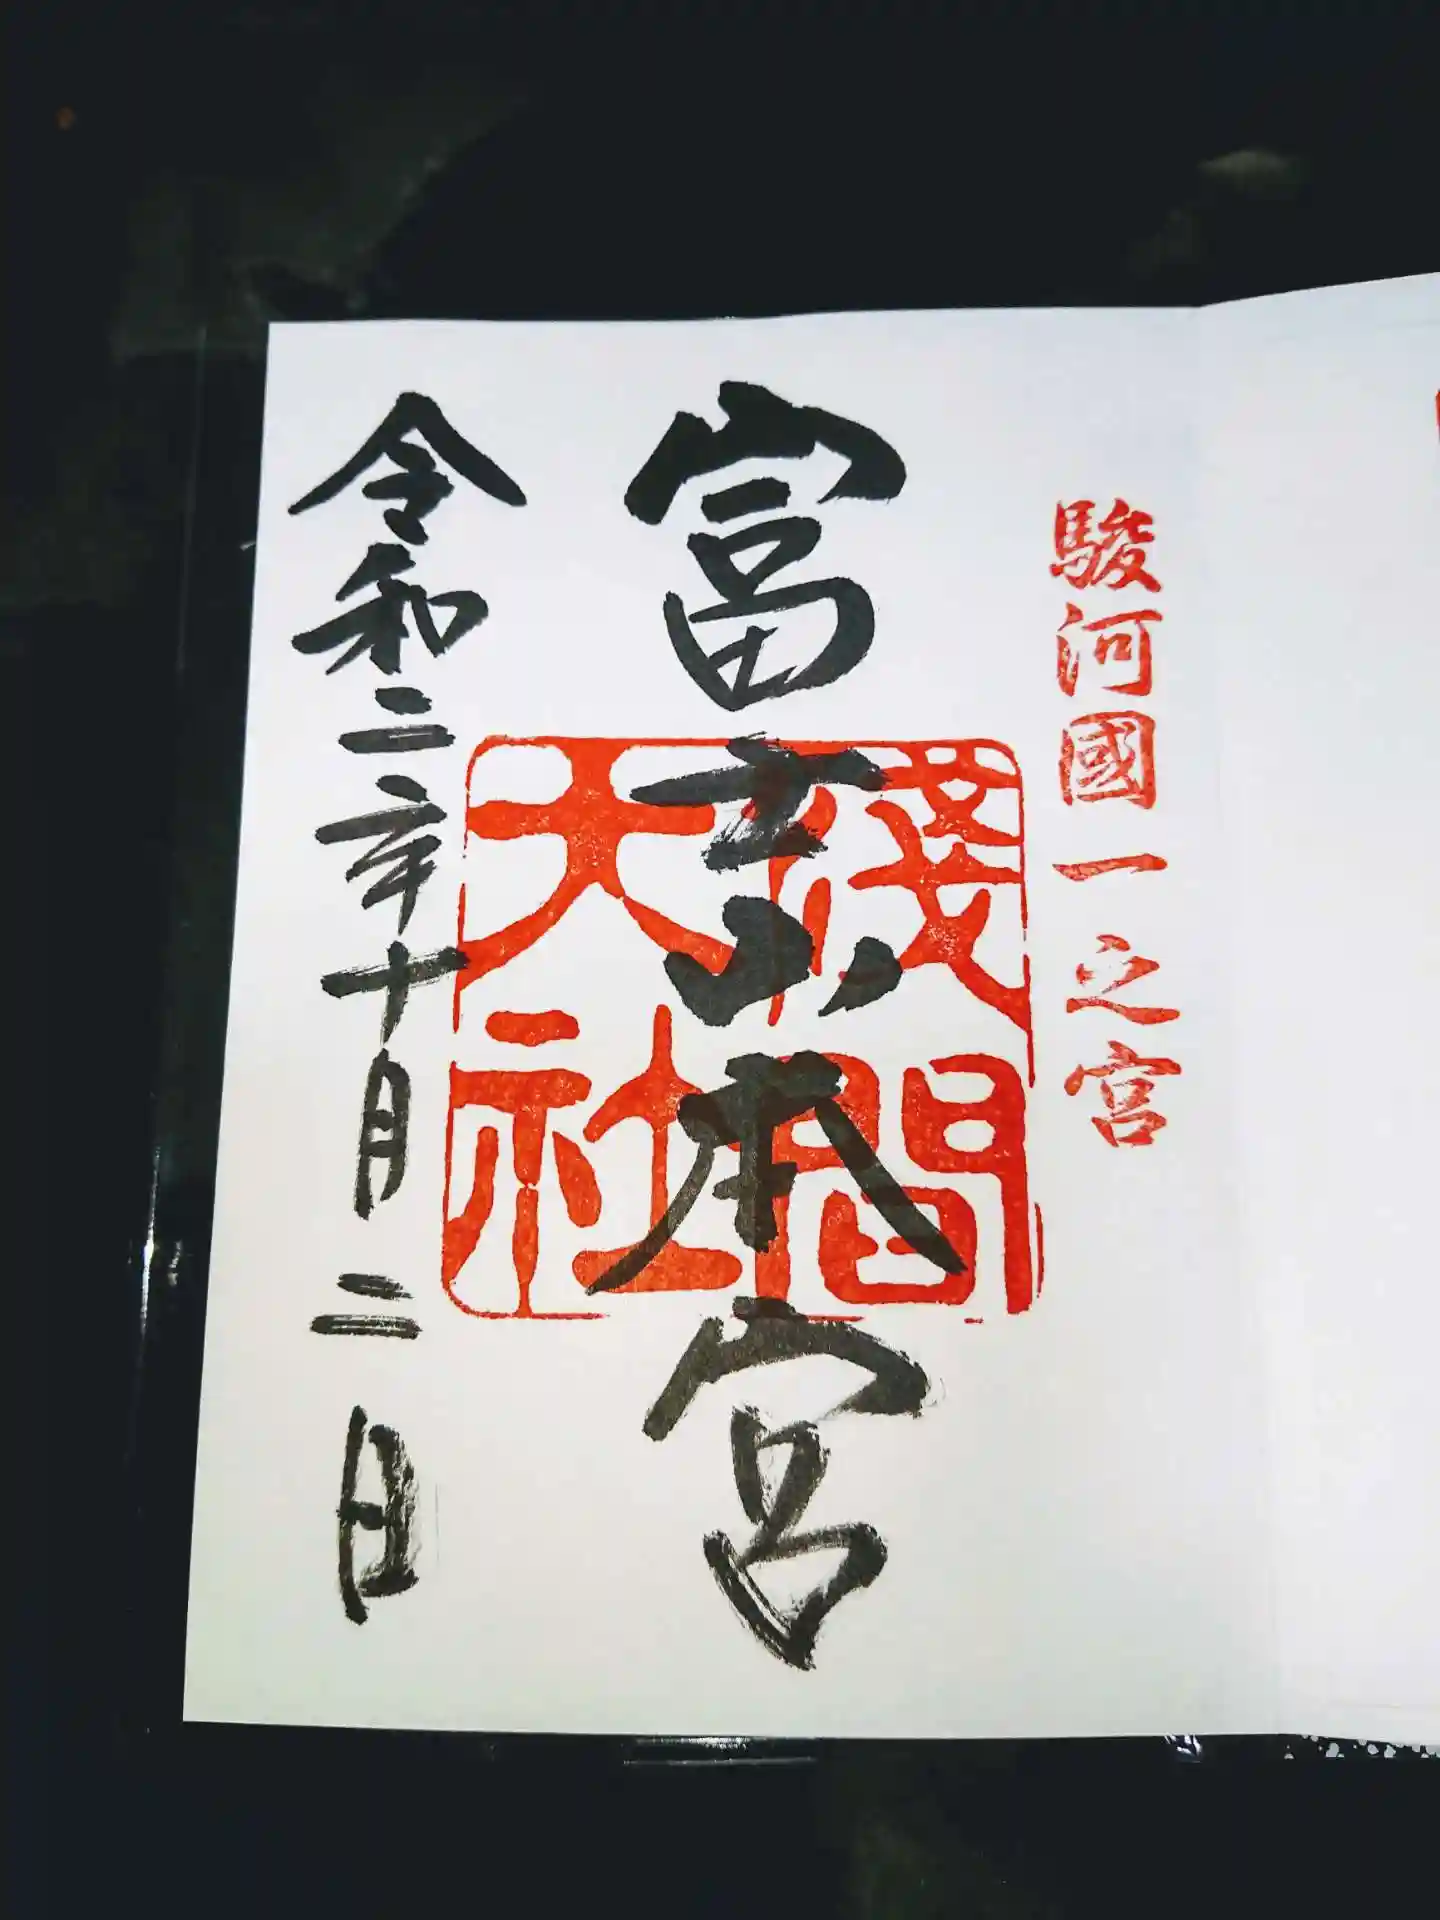 駿河國一之宮
富士山本宮
淺間
大社
令和二年十月二日